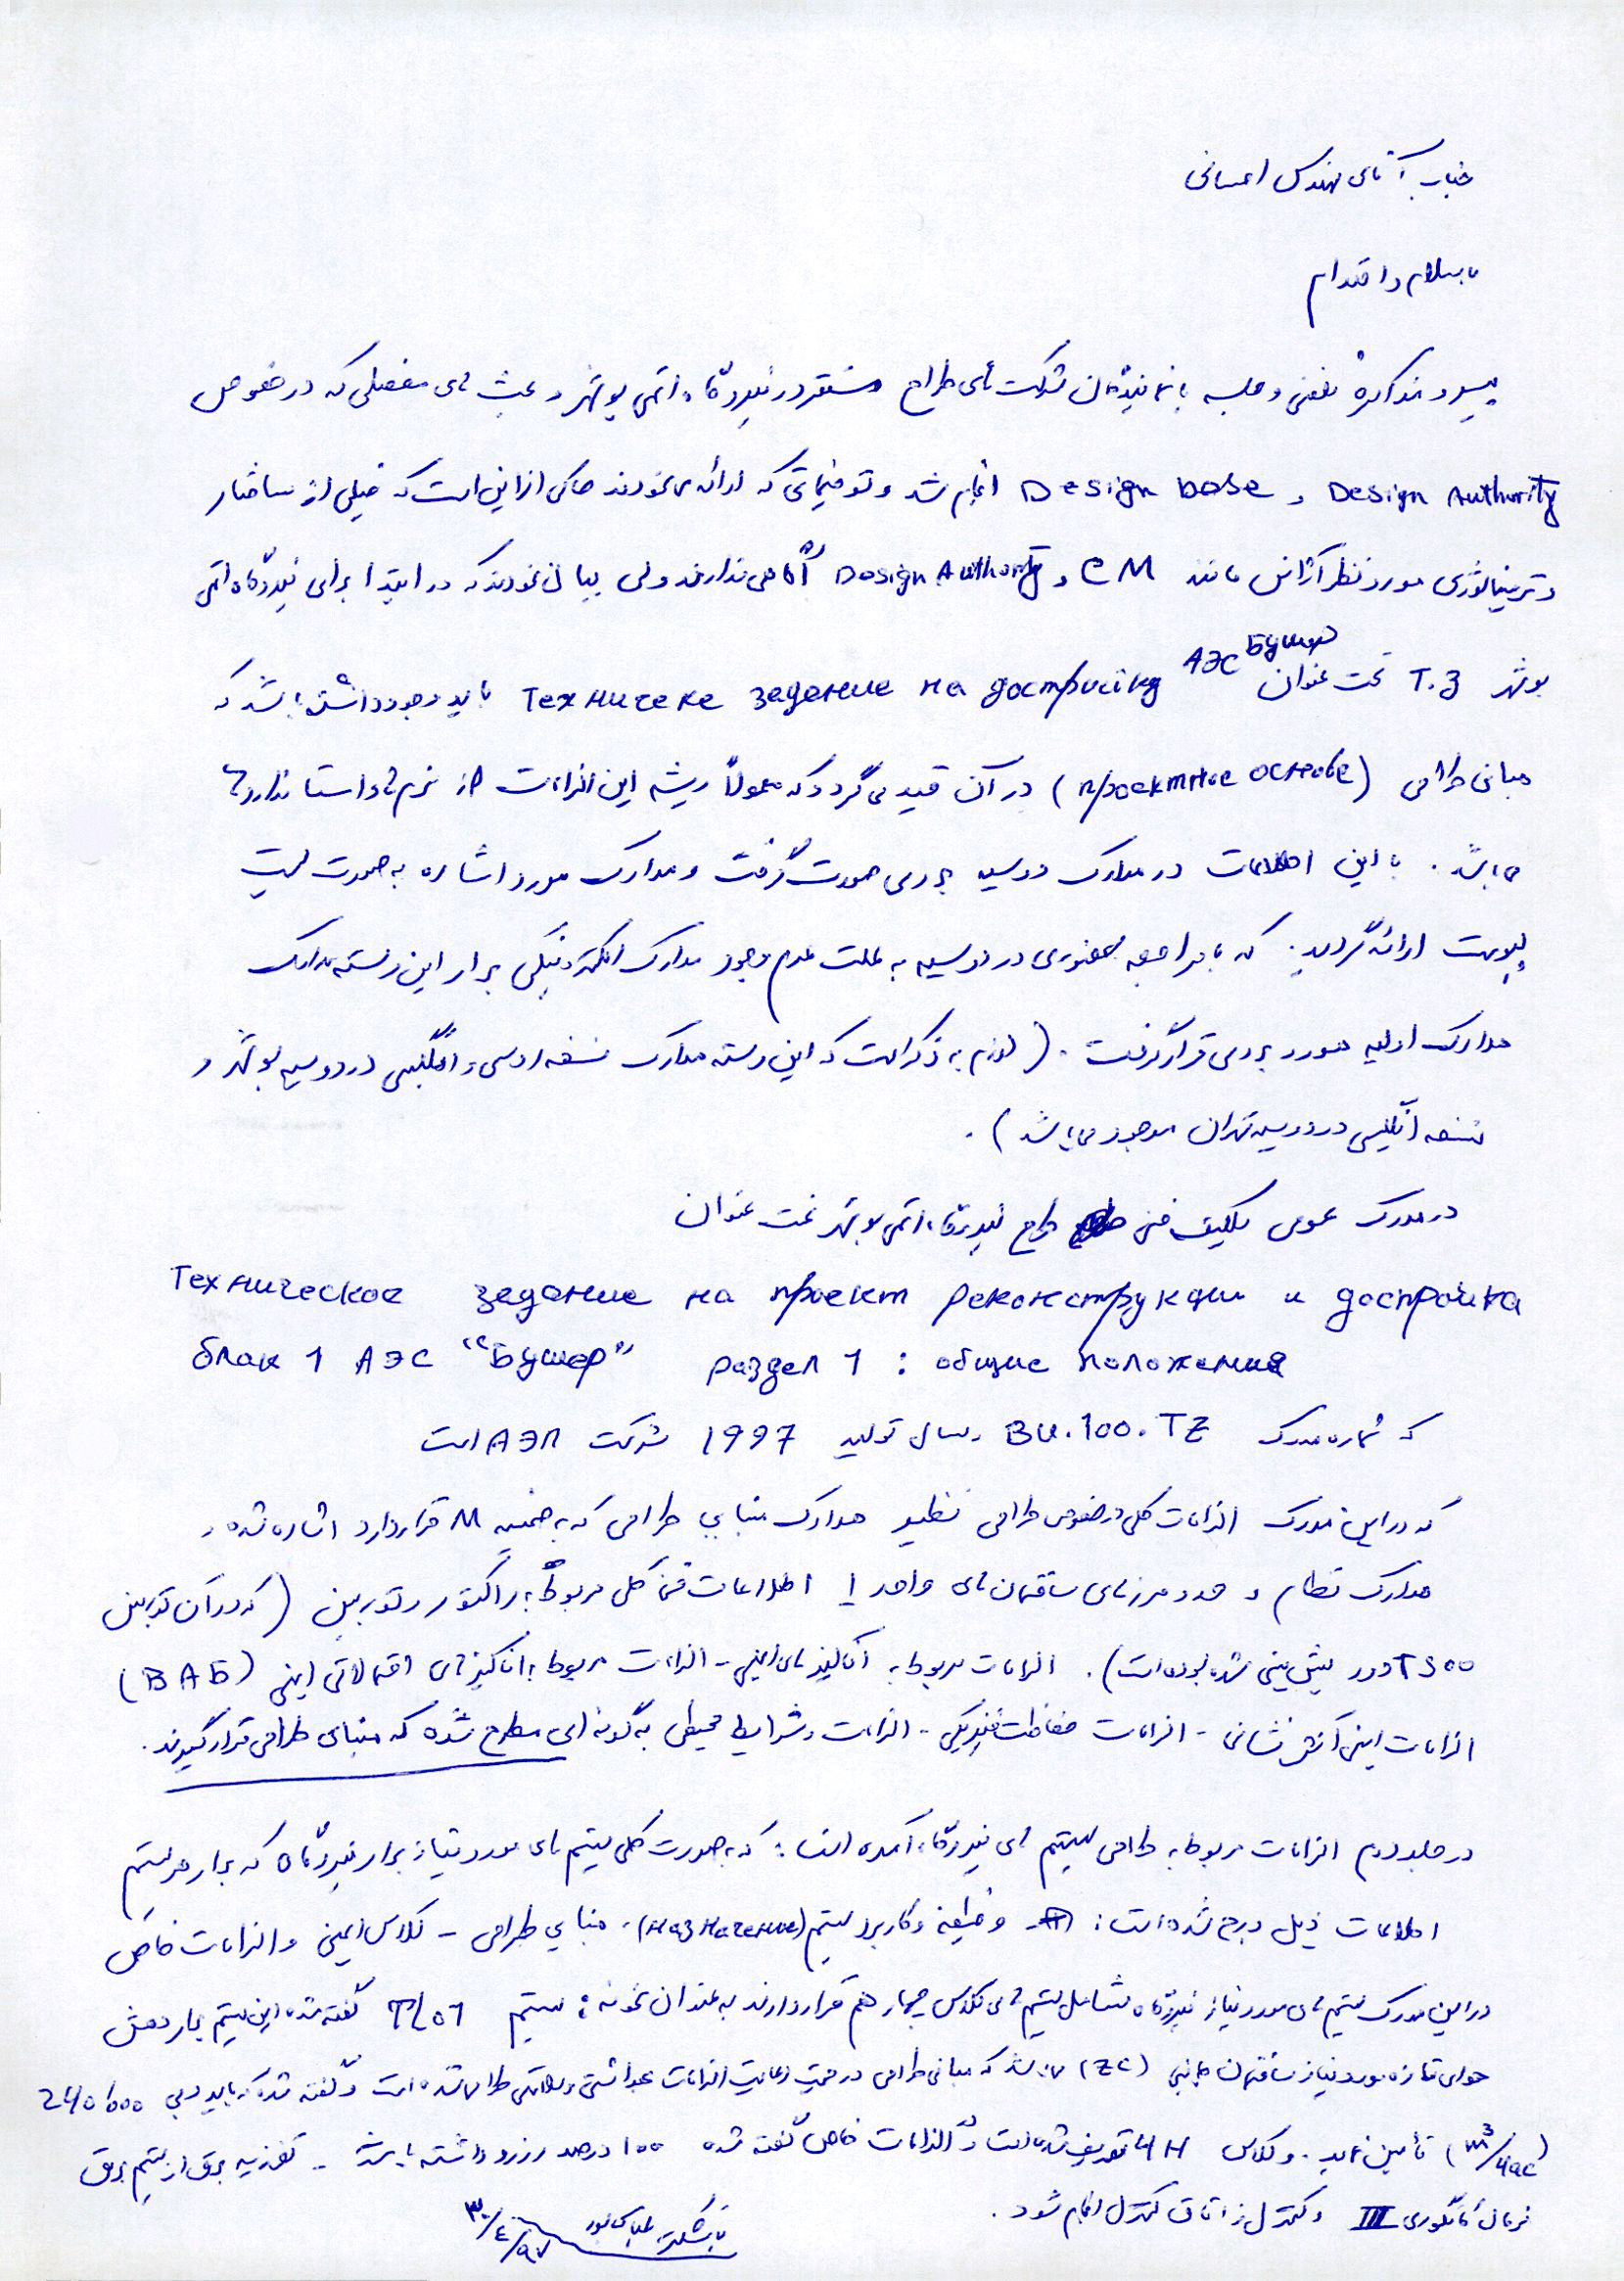 جناب آقای مهندس احسانی
با سلام و احترام
پیرو مذاکره تلفنی و جلسه با نمایندگان شرکت های طراح مستقر در نیروگاه اتمی بوشهر و بحث های مفصلی که در خصوص
Design Authority و Design base انجام شد و توضیحاتی که ارائه می نمودند حاکی از این است که خیلی از ساختار
و ترمینالوژی مورد نظر آژانس مانند CM و Design Authority آگاهی ندارند ولی بیان نمودند که در ابتدا برای نیروگاه اتمی
بوشهر T.З تحت عنوان Техничеке задание на достройку АЭС Бушер باید وجود داشته باشد که
مبانی طراحی (проектные основе) در آن قید می گردد که معمولاً ریشه این الزامات از نرم ها و استانداردها
می باشد. با این اطلاعات در مدارک مدرسیه بررسی صورت گرفت و مدارک مورد اشاره به صورت لیست
پیوست ارائه گردید. که با مراجعه حضوری در مدرسیه به علت عدم وجود مدارک الکترونیکی برای این دسته مدارک
مدارک اولیه مورد بررسی قرار گرفت. (لازم به ذکر است که این دسته مدارک نسخه روسی و انگلیسی در مدرسیه بوشهر و
نسخه انگلیسی در مدرسیه تهران موجود می باشد).
در مدرک عمومی تکلیف فنی طرح نیروگاه اتمی بوشهر تحت عنوان
Техническое задание на проект реконструкции и достройка
блок 1 АЭС "Бушер" раздел 1 : общие положения
که شماره مدرک BU.100.TZ و سال تولید 1997 شرکت АЭП است
که در این مدرک الزامات کلی در خصوص طراحی نظیر مدارک مبنای طراحی که به ضمیمه M قرارداد اشاره شده و
مدارک نظام و حدود مرزهای ساختمان های واحد 1 اطلاعات فنی کلی مربوط به راکتور و توربین (که در آن توربین
3000 دور پیش بینی شده بوده است). الزامات مربوط به آنالیزهای ایمنی - الزامات مربوط به آنالیزهای احتمالاتی ایمنی (ВАБ)
الزامات ایمنی آتش نشانی - الزامات حفاظت فیزیکی - الزامات و شرایط محیطی به گونه ای مطرح شده که مبنای طراحی قرار گیرند.
در جلد دوم الزامات مربوط به طراحی سیستم های نیروگاه آمده است: که به صورت کلی سیستم های مورد نیاز برای نیروگاه که برای هر سیستم
اطلاعات ذیل درج شده است: وظیفه و کاربرد سیستم (назначение)، مبنای طراحی - کلاس ایمنی و الزامات خاص
در این مدرک سیستم های مورد نیاز نیروگاه شامل سیستم های کلاس چهار هم قرار دارند به عنوان نمونه: سیستم TL01 گفته شده این سیستم برای دمش
هوای تازه مورد نیاز ساختمان جانبی (ZC) می باشد که مبانی طراحی در جهت رعایت الزامات بهداشتی و سلامتی طراحی شده است و گفته شده که باید دبی 240/000
(m³/час) تأمین نماید. و کلاس 4H تعریف شده است و الزامات خاص گفته شده 100 درصد رزرو داشته باشد - تغذیه برق از سیستم برق
نرمال کاتگوری III و کنترل از اتاق کنترل انجام شود.
با تشکر
97/4/30